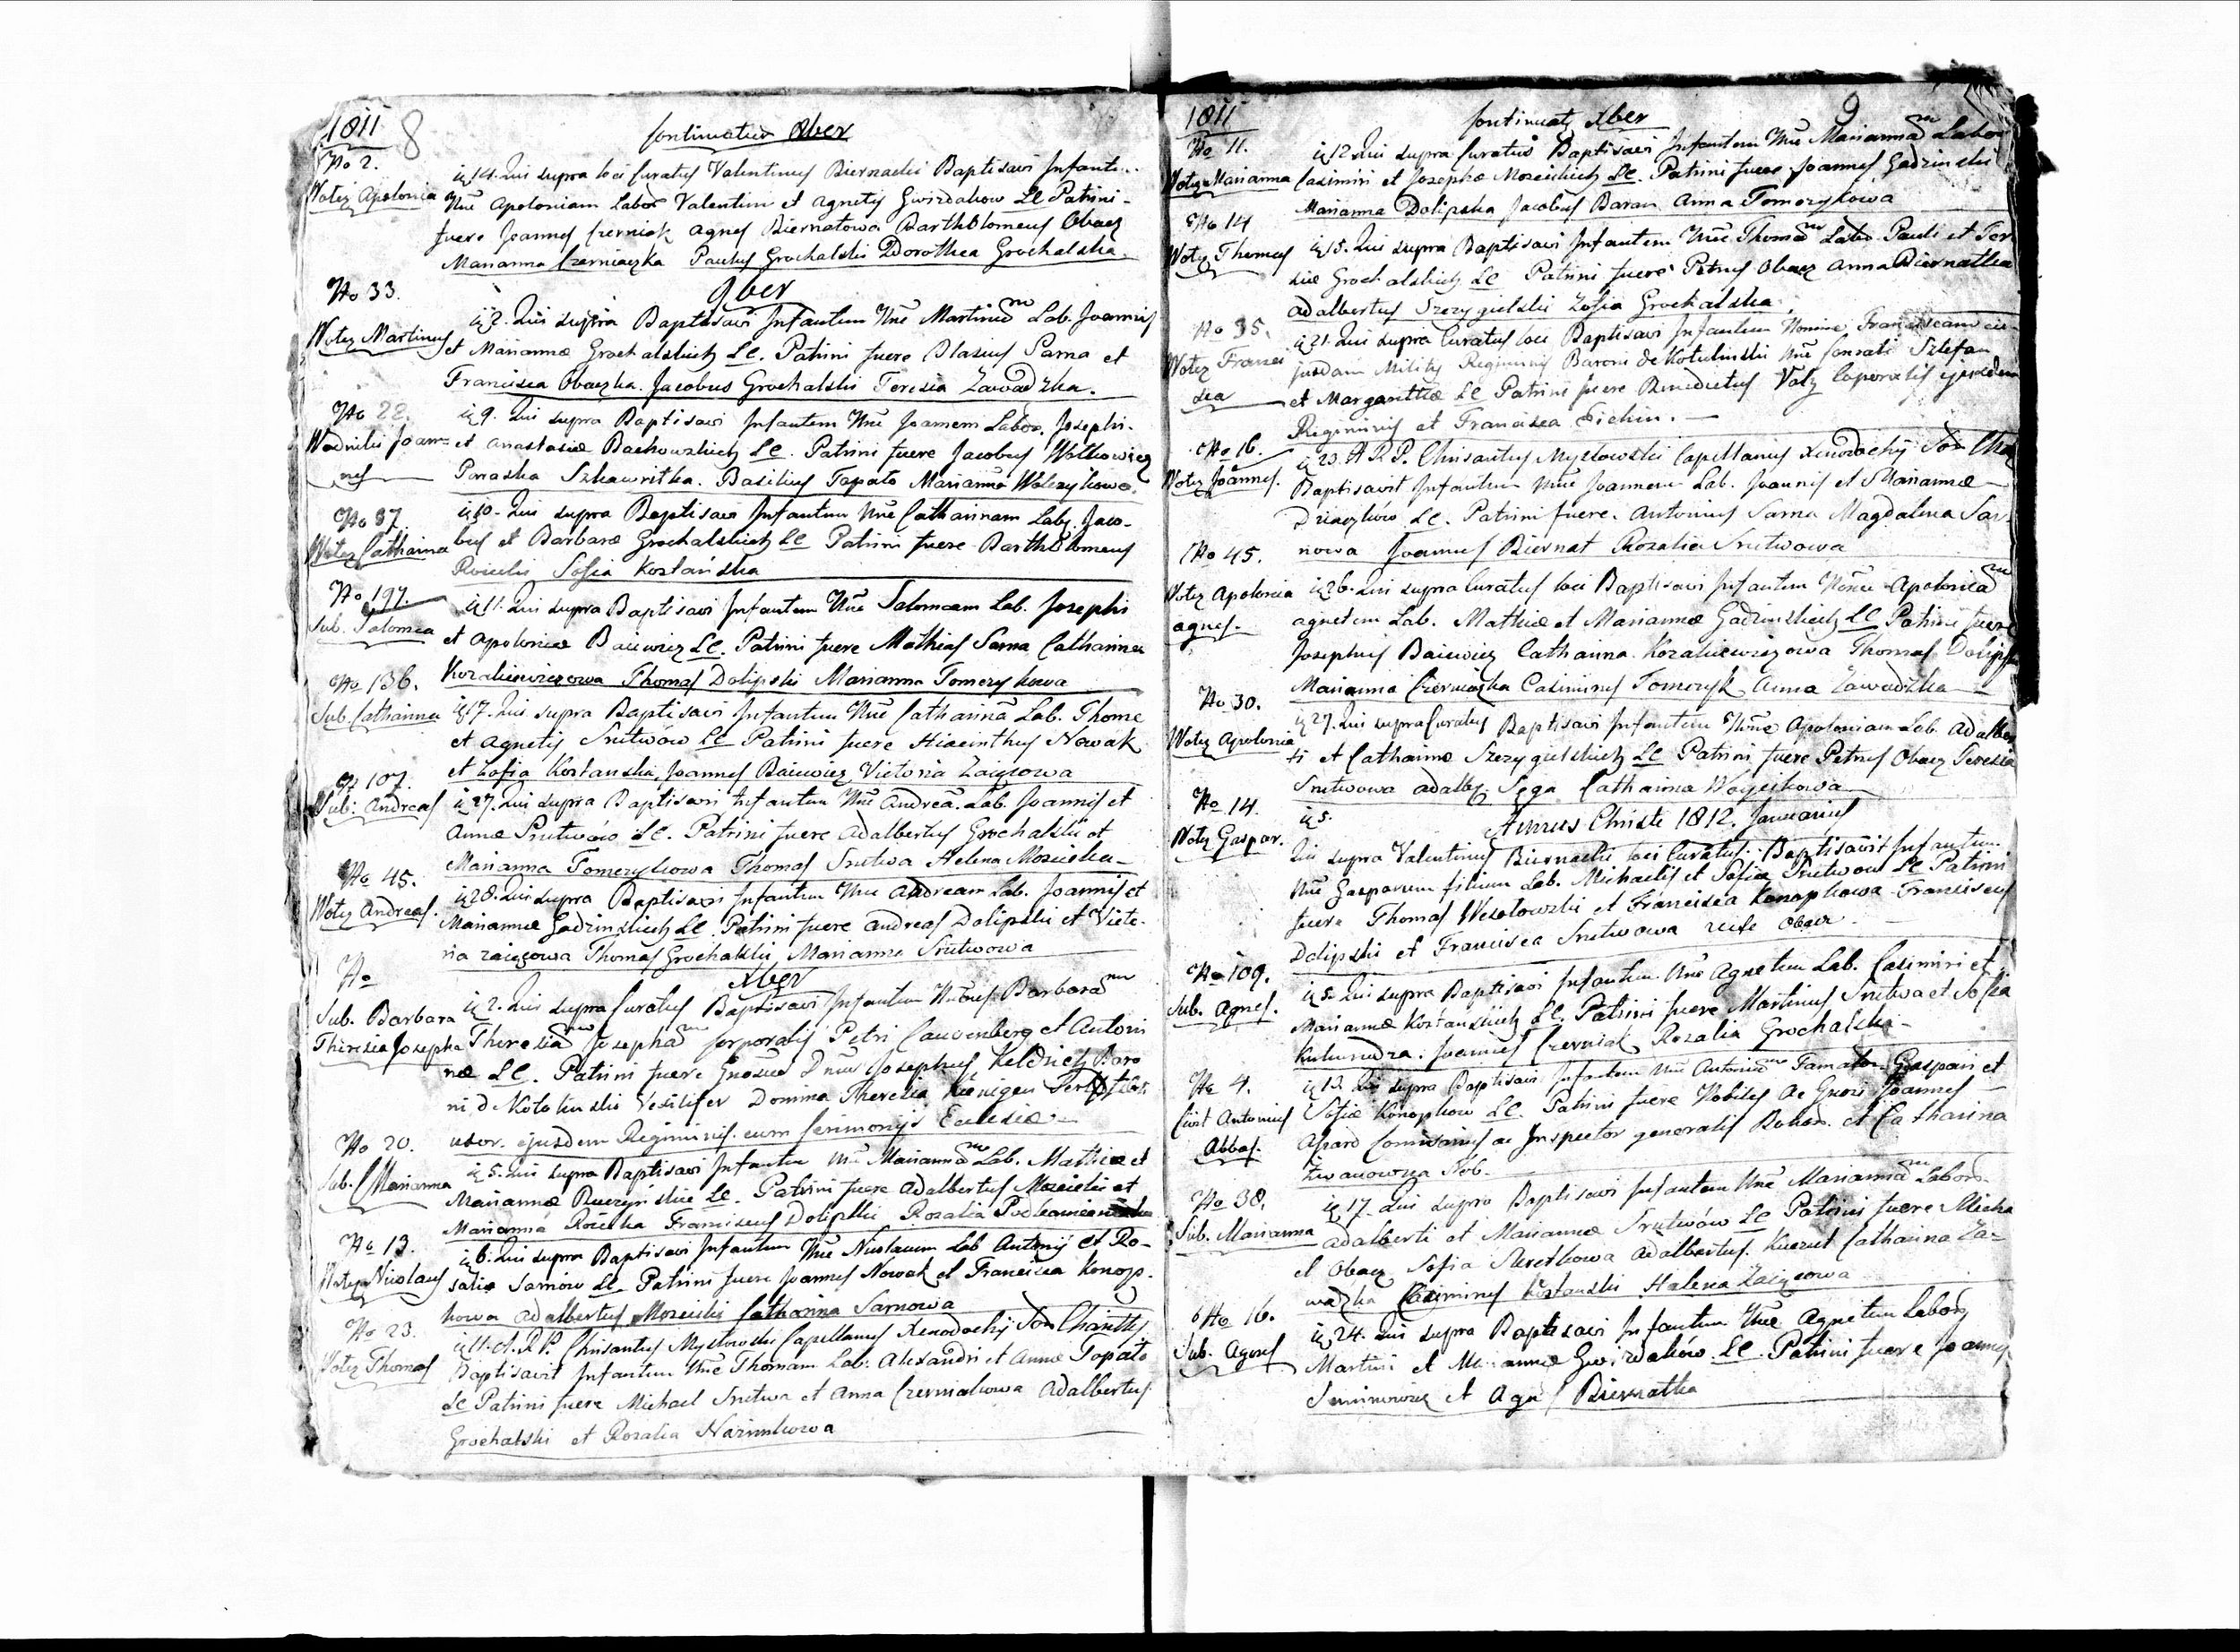 1811 8 Continuatur 8ber
No 2.
Wolez Apolonia
14. Qui supra loci Curatus Valentinus Biernacki Baptisavi Infant
Nne Apoloniam Labor Valentini et Agnetis Gwizdakow LC Patrini
fuere Joannes Czerniak Agnes Biernatowa Bartholomeus Obacz
Marianna Czerniaczka Paulus Grochalski Dorothea Grochalska.
9ber
No 33.
Wolez Martinus
2. Qui supra Baptisavi Infantem Nne Martinum Lab. Joannis
et Marianna Grochalskich LC. Patrini fuere Blasius Sarna et
Francisca Obaczka. Jacobus Grochalski Teresia Zawadzka.
No 22.
Joannes
9. Qui supra Baptisavi Infantem Nne Joannem Labor. Josephi
et Anastasiæ Bachowskich LC. Patrini fuere Jacobus Wolkowicz
Paraska Szkawritka. Basilius Topato Marianna
No 37
Wolez Catharina
10. Qui supra Baptisavi Infantem Nne Catharinam Lab. Jaco-
bus et Barbaræ Grochalskich LC Patrini fuere Bartholomeus
Sofia Kostanska
No 197.
Sub. Salomea
11. Qui supra Baptisavi Infantem Nne Salomeam Lab. Josephi
et Apoloniæ Baiewicz LC. Patrini fuere Mathias Sarna Catharina
Kozakiewiczowa Thomas Dolipski Marianna Tomczykowa
No 136.
Sub. Catharina
17. Qui supra Baptisavi Infantem Nne Catharinã Lab. Thome
et Agnetis Srutwow LC Patrini fuere Hiacinthus Nowak
et Zofia Kostanska, Joannes Baiewicz Victoria Zaięcowa
No 107.
Sub: Andreas
27. Qui supra Baptisavi Infantem Nne Andreã. Lab. Joannis et
Annæ Srutwów LC. Patrini fuere Adalbertus Grochalski et
Marianna Tomczykowa Thomas Srutwa Helena Mozeiska
No 45.
Wolez Andreas.
28. Qui supra Baptisavi Infantem Nne Andream Lab. Joannis et
Mariannæ Gadzinskich LC. Patrini fuere Andreas Dolipski et Victo-
ria Zaięcowa Thomas Grochalski, Marianna Srutwowa
Xber
No
Sub. Barbara
Theresia Josepha
2. Qui supra Curatus Baptisavi Infantem Barbaram
Theresiam Josepham Corporalis Petri Cauvenberg et Antoni
næ LC. Patrini fuere Josephus Baro
ni d Vexilifer Domina Theresia
uxor ejusdem Regiminis. cum Cerimonijs Ecclesiæ
No 20.
Sub. Marianna
5. Qui supra Baptisavi Infantem Nne Mariannam Lab. Mathiæ et
Mariannæ LC. Patrini fuere Adalbertus Mozeiski et
Marianna Franciscus Dolipski Rozalia
No 13.
Wolez Nicolaus
6. Qui supra Baptisavi Infantem Nne Nicolaum Lab Antonij et Ro-
saliæ Sarnów LC. Patrini fuere Joannes Nowak et Francisca Konop-
kowa Adalbertus Mozeiski Catharina Sarnowa
No 23.
Wolez Thomas
11. A. R. P. Chrisantus Mysłowski Capellanus Xenodochij
Baptisavit Infantem Nne Thomam Lab. Alexandri et Annæ Topato
LC Patrini fuere Michael Srutwa et Anna Czerniakowa Adalbertus
Grochalski et Rozalia Nazimkowa
1811 Continuat Xber 9
No 11.
Wolez Marianna
12. Qui supra Curatus Baptisavi Infantem Nne Mariannam Labor
Casimiri et Josephæ Mozeiskich LC. Patrini fuere Joannes Gadzinski
Marianna Dolipska Jacobus Baran Anna Tomczykowa
No 14
Wolez Thomas
15. Qui supra Baptisavi Infantem Nne Thomam Labo. Pauli et Ter
siæ Grochalskich LC Patrini fuere Petrus Obacz Anna Biernatka
Adalbertus Szczygielski Zofia Grochalska.
No 35.
Wolez Franci
sca
21. Qui supra Curatus loci Baptisavi Infantem Nomine Franciscam
jusdam Militis Regiminis Baroni de Kotulinski Nne Conrati Sztefan
et Margarithæ LC Patrini fuere Benedictus Caporalis ejusdem
Regiminis et Francisca
No 16.
Wolez Joannes.
23. A R. P. Chrisantus Mysłowski Capellanus Xenodochij
Baptisavit Infantem Nne Joannem Lab. Joannis et Mariannæ
LC. Patrini fuere. Antonius Sarna Magdalena Sar-
nowa Joannes Biernat Rozalia Srutwowa
No 45.
Wolez Apolonia
Agnes.
26. Qui supra Curatus loci Baptisavi Infantem Apoloniam
Agnetem Lab. Mathiæ et Mariannæ Gadzinskich LC Patrini fuere
Josephus Baiewicz Catharina Kozakiewiczowa Thomas Dolipski
Marianna Czerniaczka Casimirus Tomczyk Anna Zawadzka
No 30.
Wolez Apolonia
27. Qui supra Curatus Baptisavi Infantem Nne Apoloniam Lab. Adalber
ti et Catharinæ Szczygielskich LC Patrini fuere Petrus Obacz Teresia
Srutwowa Adalbs. Sęga Catharina Woyczikowa
Annus Christi 1812. Januarius
No 14.
Wolez Gaspar.
5.
Qui supra Valentinus Biernacki loci Curatus. Baptisavit Infantem
Nne Gasparum filium Lab. Michaelis et Sofiæ Srutwow LC Patrini
fuere Thomas Wesołowski et Francisca Konopkowa Franciscus
Dolipski et Francisca Srutwowa
No 109.
Sub. Agnes.
5. Qui supra Baptisavi Infantem Nne Agnetem Lab. Casimiri et
Mariannæ Kostanskich LC. Patrini fuere Martinus Srutwa et Sofia
Joannes Czerniak Rozalia Grochalska
No 4.
Antonius
Abbas.
13. Qui supra Baptisavi Infantem Nne Antonium Gaspari et
Sofiæ Konopkow LC. Patrini fuere Nobiles
ac Inspector generalis et Catharina
Nob.
No 38.
Sub. Marianna
17. Qui supra Baptisavi Infantem Nne Mariannam Labor.
Adalberti et Mariannæ Srutwów LC Patrini fuere Micha
el Obacz Sofia Adalbertus. Catharina Za-
wadzka Casimirus Kostanski Helena Zaięcowa
No 16.
Sub. Agnes
24. Qui supra Baptisavi Infantem Nne Agnetem Labor
Martini et Mariannæ Gwizdaków LC. Patrini fuere Joannes
et Agn Biernatka